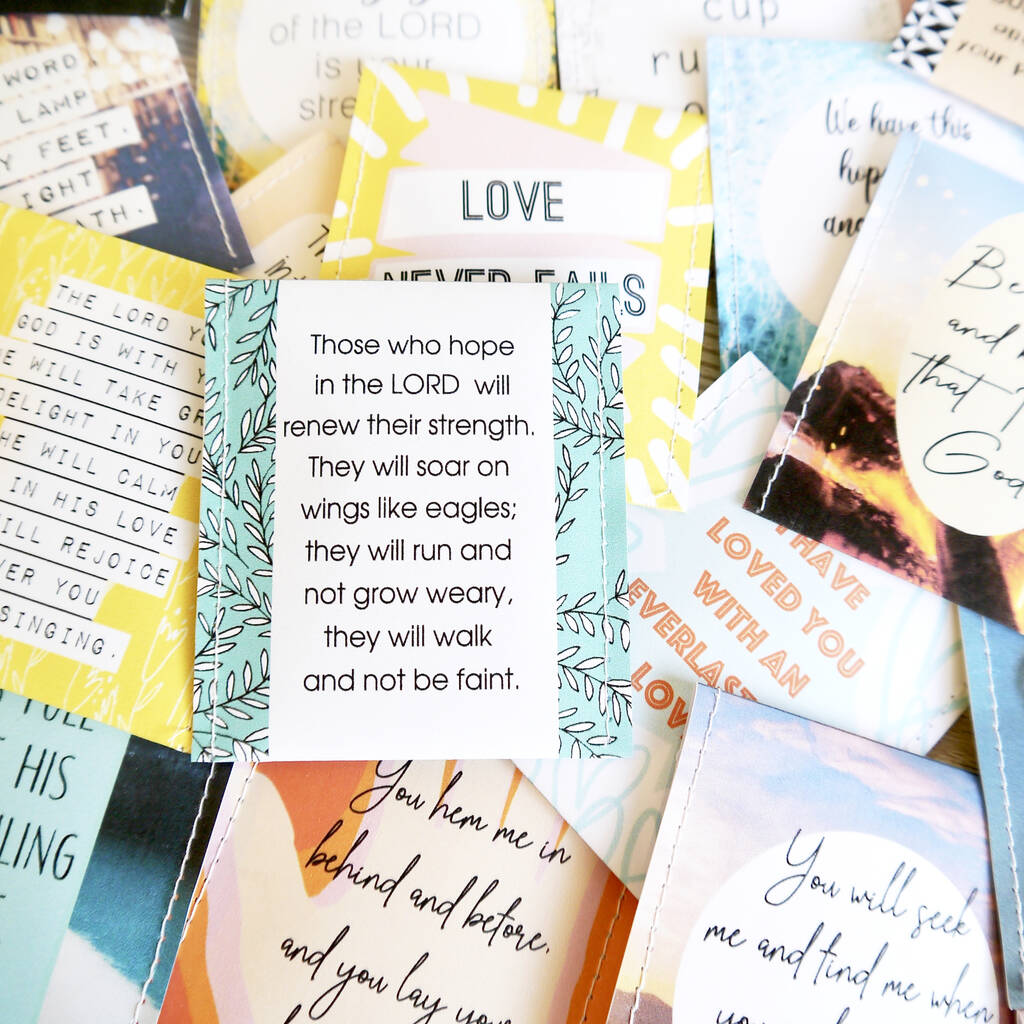 of the LORD
is your
stre
cup
ru
your
WORD
LAMP
Y FEET.
IGHT
ATH.
We have this
hop
and
LOVE
NEVER FAILS
Be
and
that I
God
THE LORD Y
GOD IS WITH Y
E WILL TAKE GR
DELIGHT IN YOU
HE WILL CALM
IN HIS LOVE
ILL REJOICE
VER YOU
SINGING.
Those who hope
in the LORD will
renew their strength.
They will soar on
wings like eagles;
they will run and
not grow weary,
they will walk
and not be faint.
I HAVE
LOVED YOU
WITH AN
EVERLAST
LOV
FULL
HIS
LING
You hem me in
behind and before,
and you lay your
You will seek
me and find me when